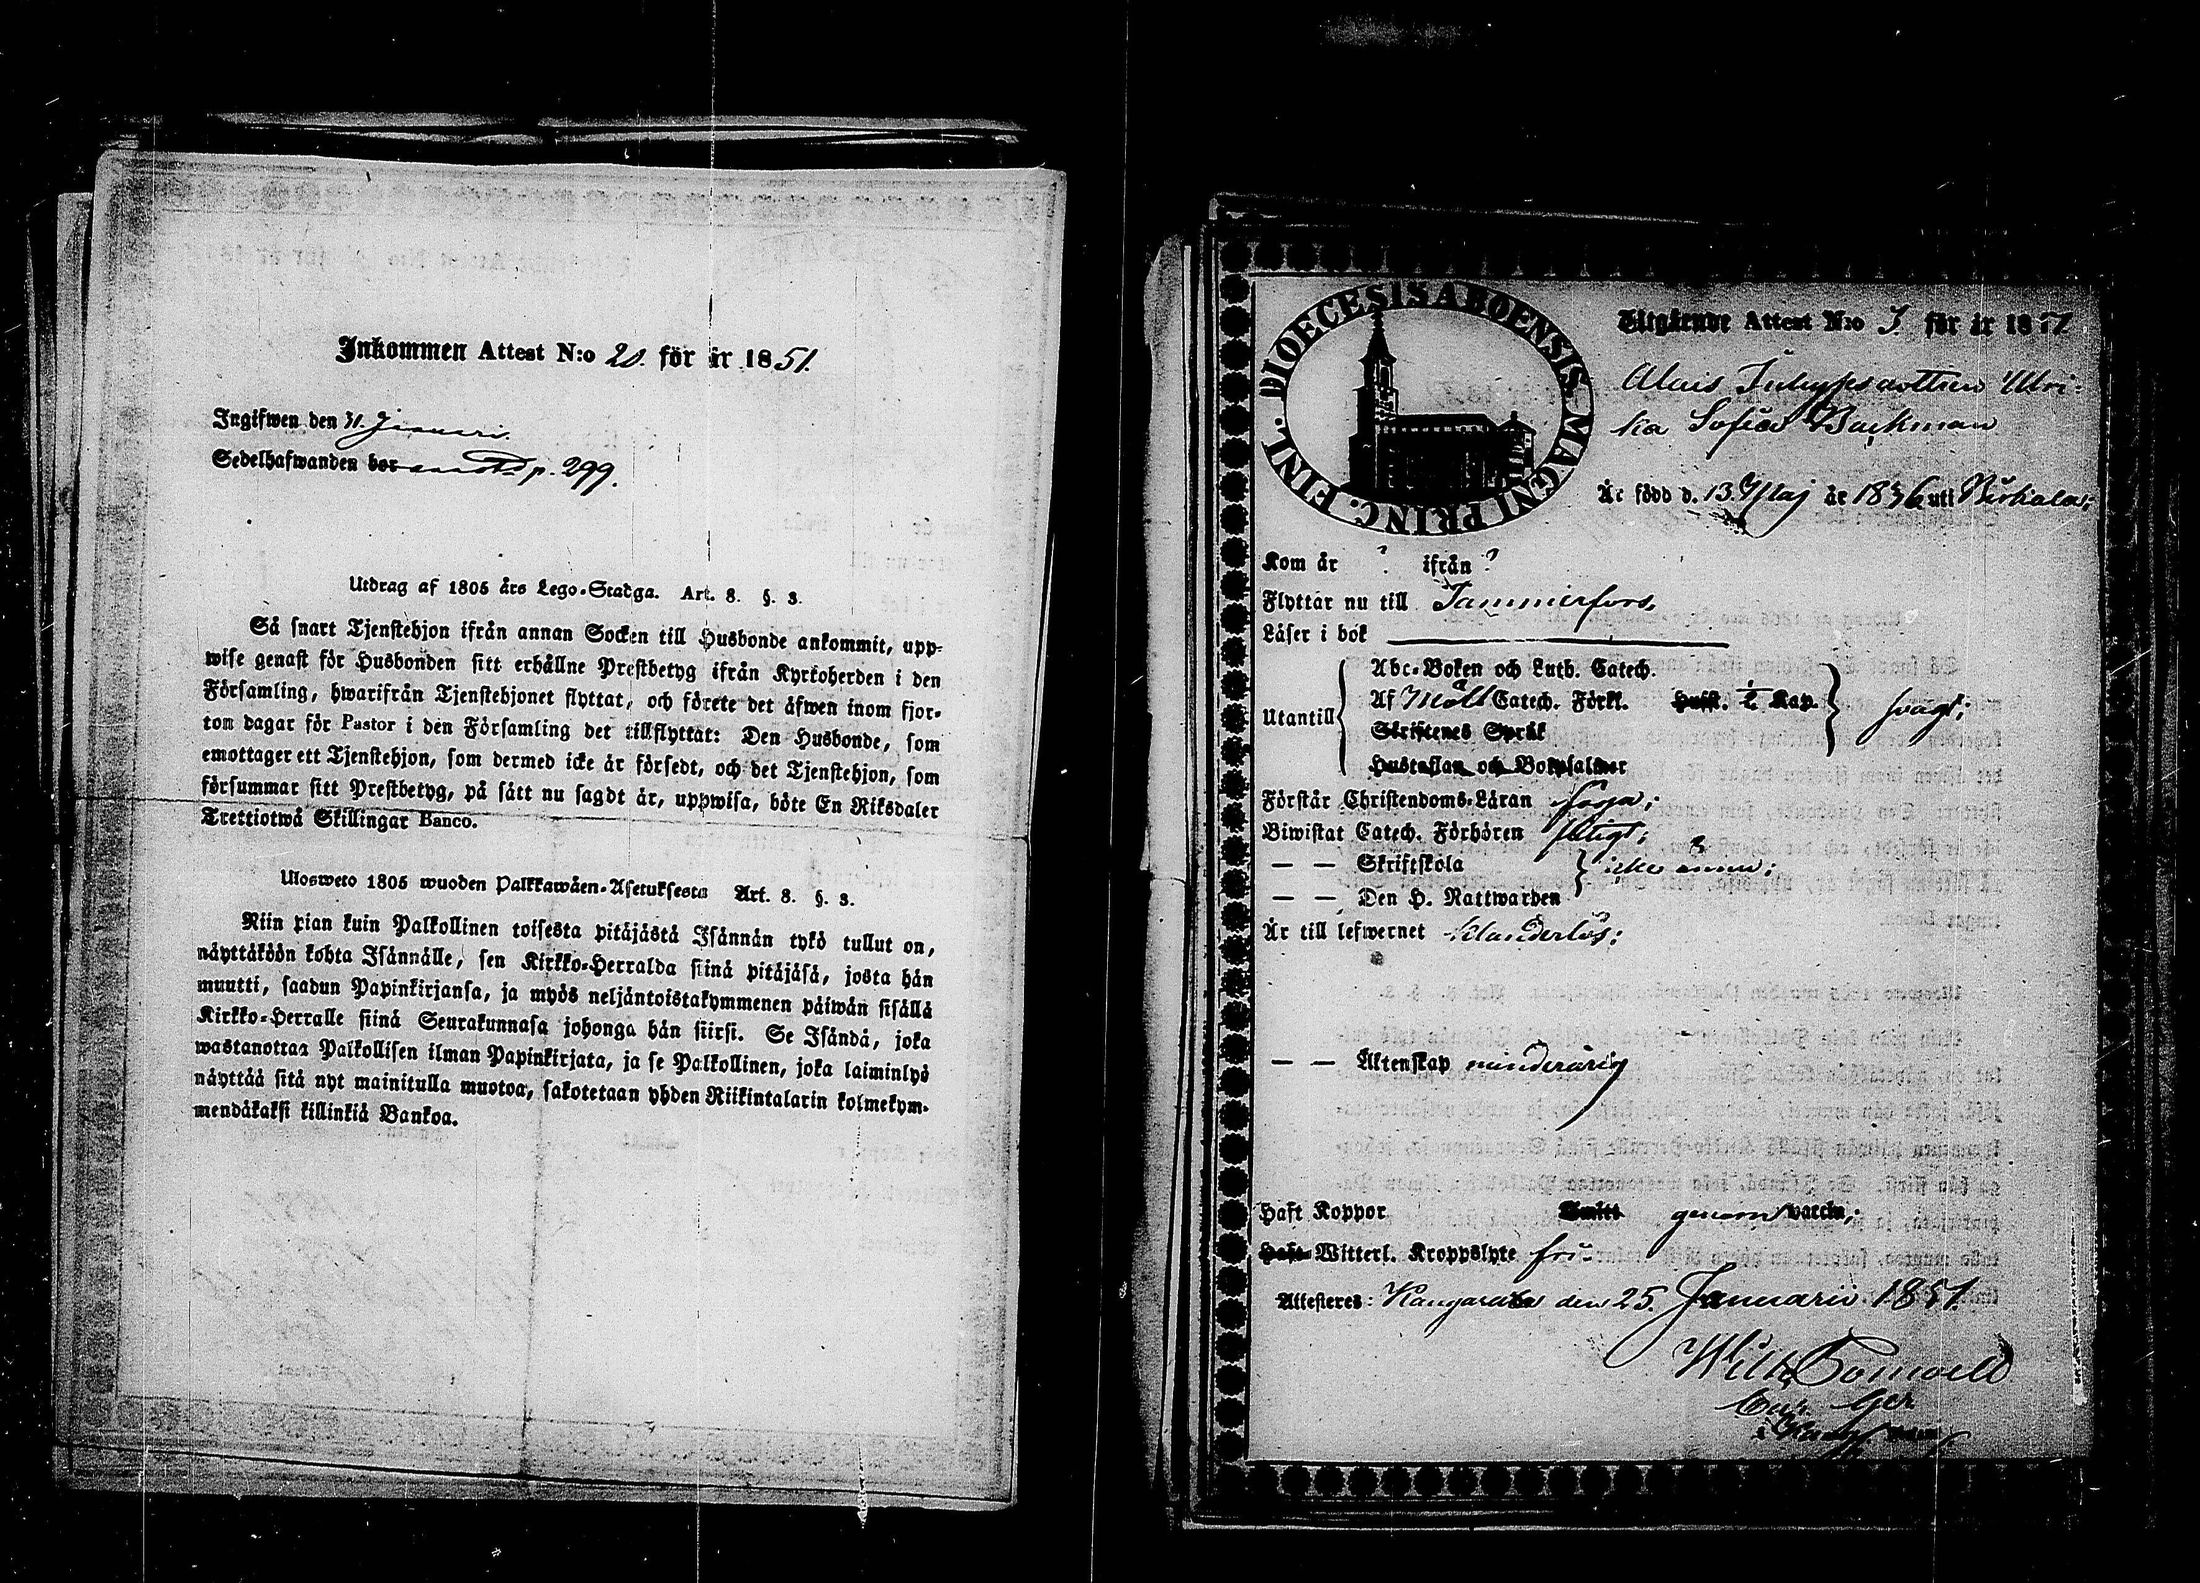 Inkommen Attest N:o 20. för år 1851.
Ingifwen den 31. Januari.
Sedelhafwanden bor p. 299.
Utdrag af 1805 års Lego-Stadga. Art. 8. §. 3.
Så snart Tjenstehjon ifrån annan Socken till Husbonde ankommit, upp-
wise genast för Husbonden sitt erhållne Prestbetyg ifrån Kyrkoherden i den
Församling, hwarifrån Tjenstehjonet flyttat, och förete det äfwen inom fjor-
ton dagar för Pastor i den Församling det tillflyttat: Den Husbonde, som
emottager ett Tjenstehjon, som dermed icke är försedt, och det Tjenstehjon, som
försummar sitt Prestbetyg, på sätt nu sagdt är, uppwisa, böte En Riksdaler
Trettiotwå Skillingar Banco.
Ulosweto 1805 wuoden Palkkawäen-Asetuksesta Art. 8. §. 3.
Niin pian kuin Palkollinen toisesta pitäjästä Isännän tykö tullut on,
näyttäköön kohta Isännälle, sen Kirkko-Herralda siinä pitäjäsä, josta hän
muutti, saadun Papinkirjansa, ja myös neljäntoistakymmenen päiwän sisällä
Kirkko-Herralle siinä Seurakunnasa johonga hän siirsi. Se Isändä, joka
wastanottaa Palkollisen ilman Papinkirjata, ja se Palkollinen, joka laiminlyö
näyttää sitä nyt mainitulla muotoa, sakotetaan yhden Riikintalarin kolmekym-
mendäkaksi killinkiä Bankoa.
DIOECESIS ABOENSIS MAGNI PRINC. FINL.
Utgående Attest N:o 3 för år 1851
Ulri-
ka Sofia Backman
Är född d. 13 Maj år 1836 uti Birkala;
Kom år ? ifrån ?
Flyttar nu till Tammerfors,
Läser i bok
Utantill
Abc-Boken och Luth. Catech.
Af Möll Catech. Förkl. Hufst. i Kap.
svagt;
Skriftenes Språk
Hustaflan och Botpsalmer
Förstår Christendoms-Läran svaga;
Biwistat Catech. Förhören flitigt;
— — Skriftskola
icke ännu;
— — Den H. Nattwarden
Är till lefwernet klanderlös;
— — Äktenskap minderårig
Haft Koppor Smitt genom vaccin;
Haft Witterl. Kroppslyte fri
Attesteres: Kangasala den 25. Januarii 1851.